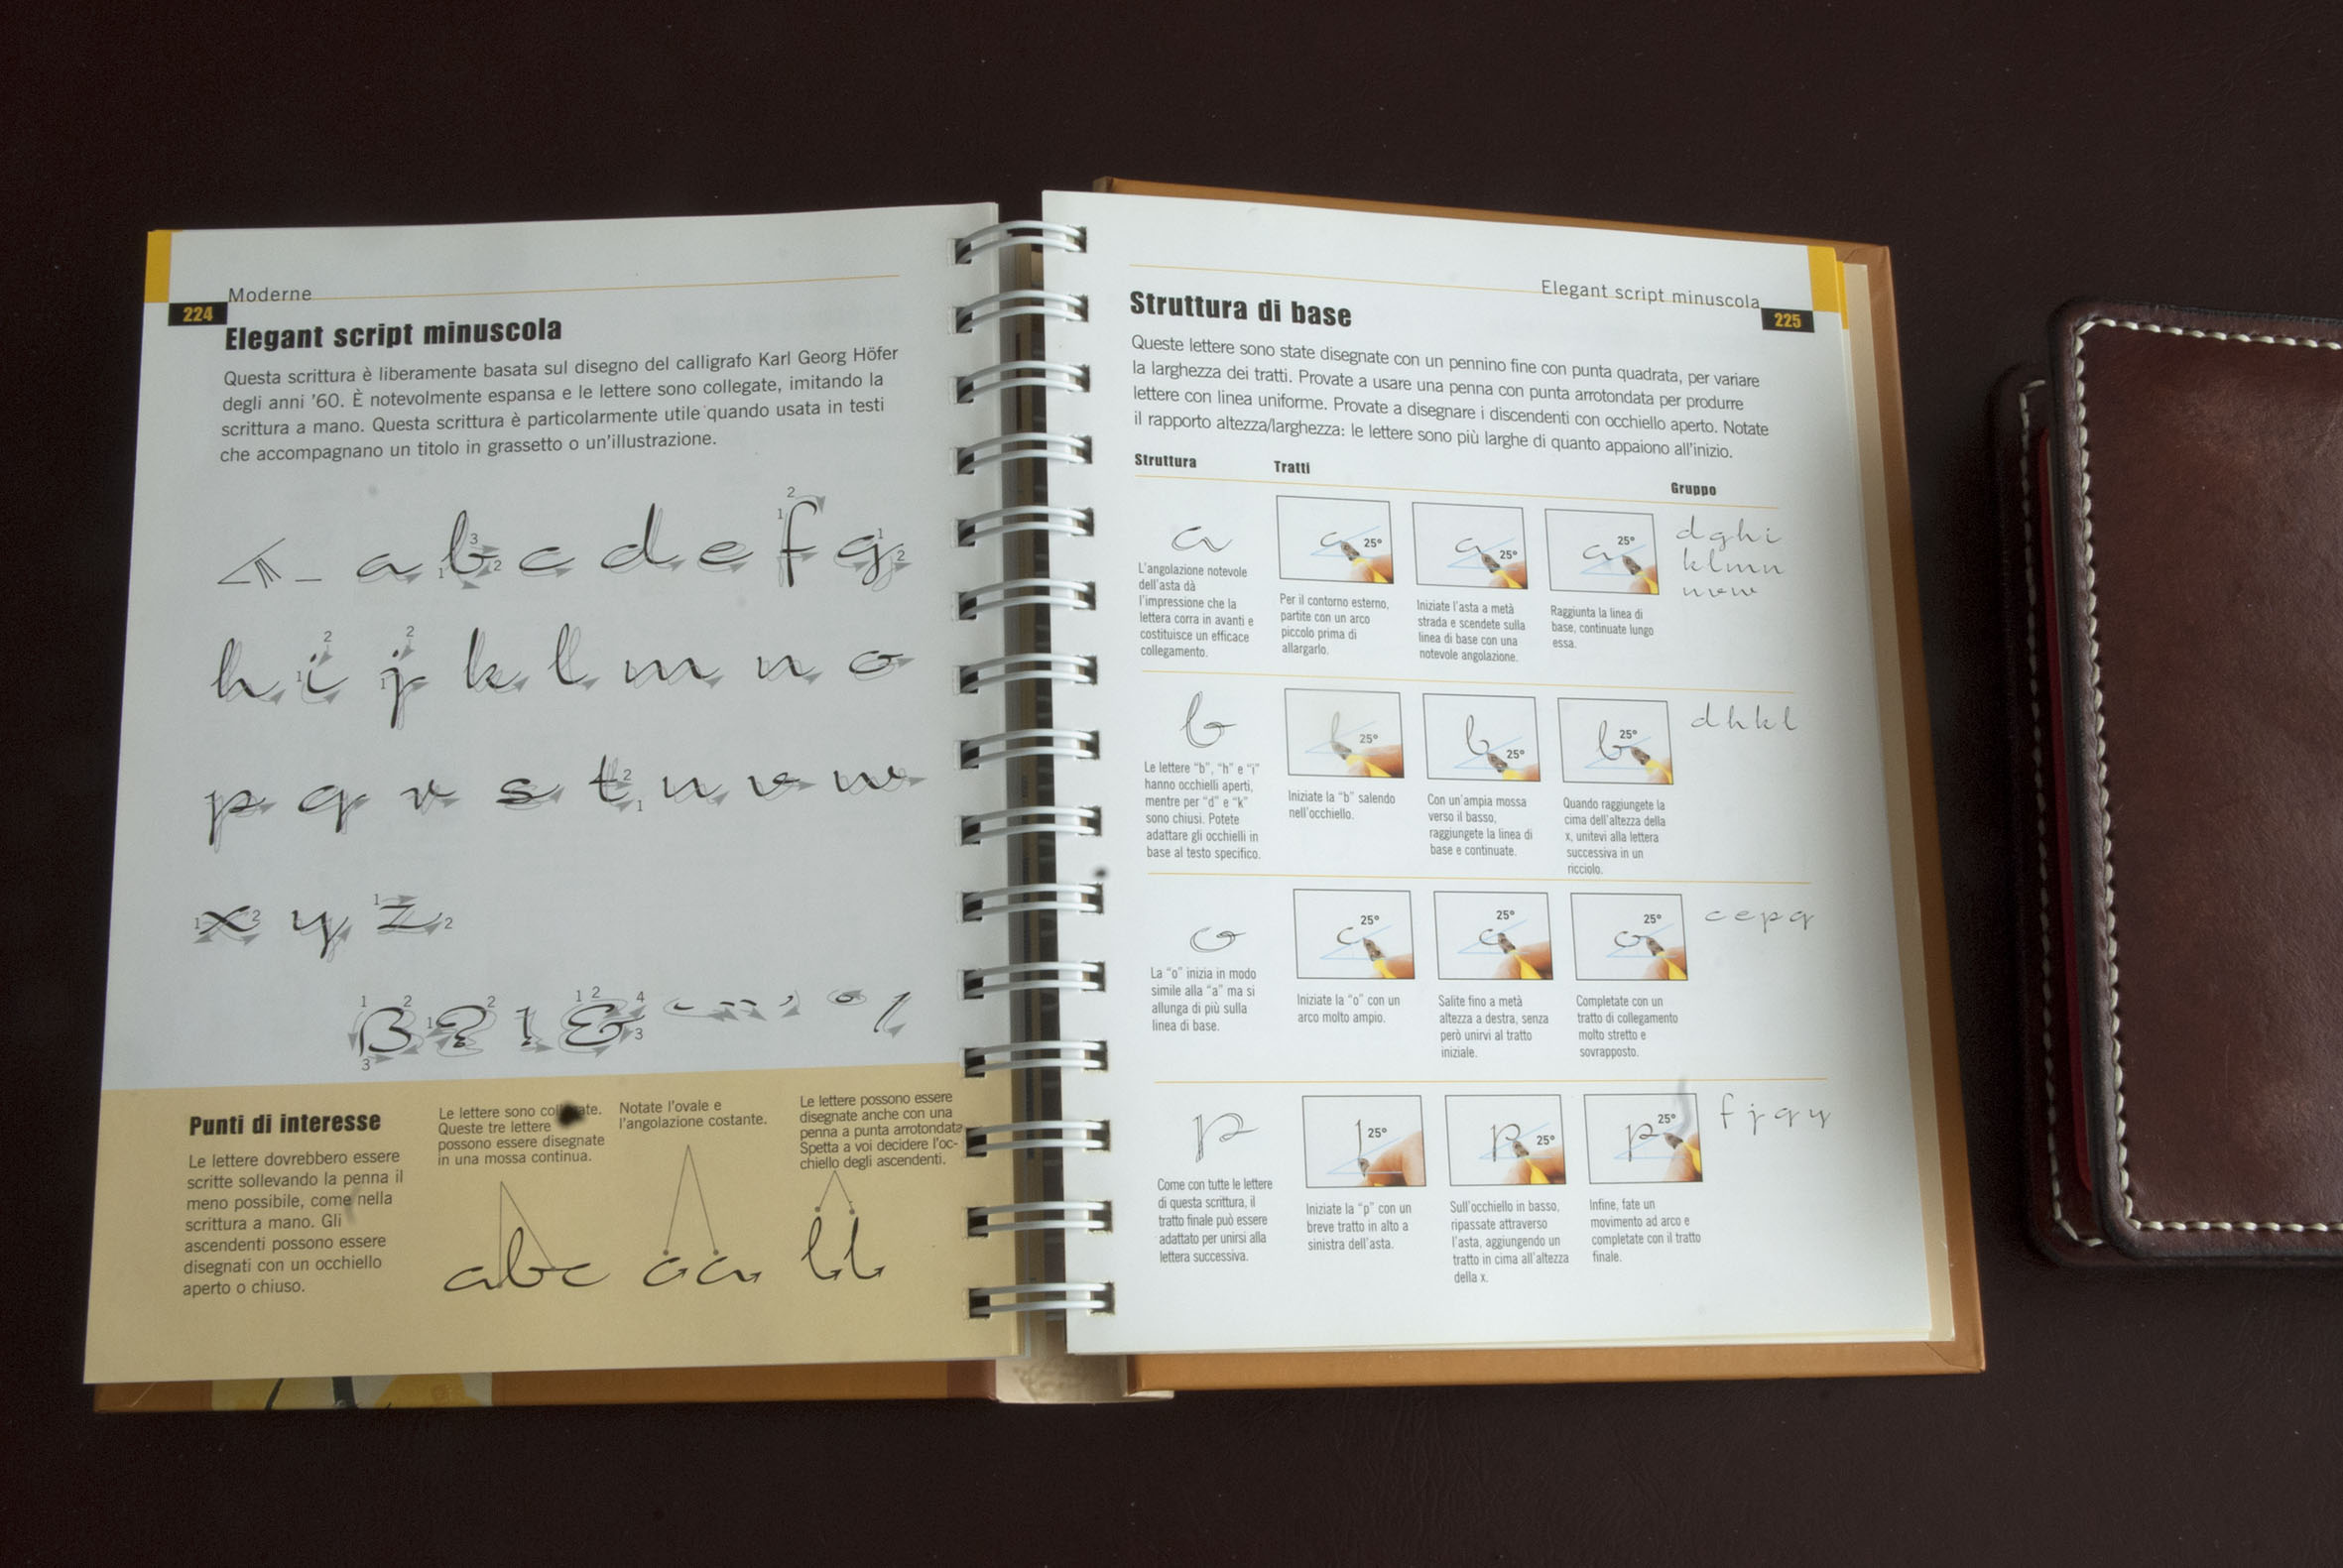 Moderne
224
Elegant script minuscola
Questa scrittura è liberamente basata sul disegno del calligrafo Karl Georg Höfer
degli anni '60. È notevolmente espansa e le lettere sono collegate, imitando la
scrittura a mano. Questa scrittura è particolarmente utile quando usata in testi
che accompagnano un titolo in grassetto o un'illustrazione.
a b c d e f g
h i j k l m n o
p q r s t u v w
x y z
ß ? ! &
Punti di interesse
Le lettere dovrebbero essere
scritte sollevando la penna il
meno possibile, come nella
scrittura a mano. Gli
ascendenti possono essere
disegnati con un occhiello
aperto o chiuso.
Le lettere sono
Queste tre lettere
possono essere disegnate
in una mossa continua.
abc
Notate l'ovale e
l'angolazione costante.
oa
Le lettere possono essere
disegnate anche con una
penna a punta arrotondata
Spetta a voi decidere l'oc-
chiello degli ascendenti.
ll
Elegant script minuscola
225
Struttura di base
Queste lettere sono state disegnate con un pennino fine con punta quadrata, per variare
la larghezza dei tratti. Provate a usare una penna con punta arrotondata per produrre
lettere con linea uniforme. Provate a disegnare i discendenti con occhiello aperto. Notate
il rapporto altezza/larghezza: le lettere sono più larghe di quanto appaiono all'inizio.
Struttura Tratti Gruppo
a
L'angolazione notevole
dell'asta dà
l'impressione che la
lettera corra in avanti e
costituisce un efficace
collegamento.
25°
Per il contorno esterno,
partite con un arco
piccolo prima di
allargarlo.
25°
Iniziate l'asta a metà
strada e scendete sulla
linea di base con una
notevole angolazione.
25°
Raggiunta la linea di
base, continuate lungo
essa.
d g h i
k l m n
u v w
b
Le lettere "b", "h" e "i"
hanno occhielli aperti,
mentre per "d" e "k"
sono chiusi. Potete
adattare gli occhielli in
base al testo specifico.
25°
Iniziate la "b" salendo
nell'occhiello.
25°
Con un'ampia mossa
verso il basso,
raggiungete la linea di
base e continuate.
25°
Quando raggiungete la
cima dell'altezza della
x, unitevi alla lettera
successiva in un
ricciolo.
d h k l
o
La "o" inizia in modo
simile alla "a" ma si
allunga di più sulla
linea di base.
25°
Iniziate la "o" con un
arco molto ampio.
25°
Salite fino a metà
altezza a destra, senza
però unirvi al tratto
iniziale.
25°
Completate con un
tratto di collegamento
molto stretto e
sovrapposto.
c e p q
p
Come con tutte le lettere
di questa scrittura, il
tratto finale può essere
adattato per unirsi alla
lettera successiva.
25°
Iniziate la "p" con un
breve tratto in alto a
sinistra dell'asta.
25°
Sull'occhiello in basso,
ripassate attraverso
l'asta, aggiungendo un
tratto in cima all'altezza
della x.
25°
Infine, fate un
movimento ad arco e
completate con il tratto
finale.
f j q y